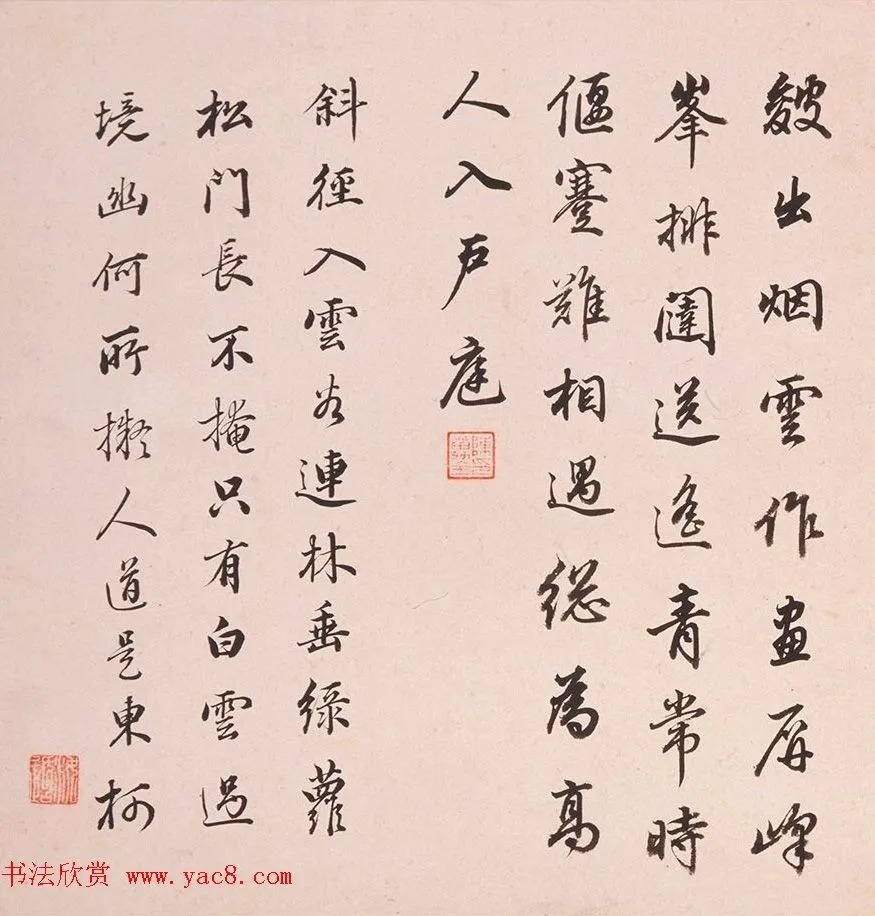 皴出烟雲作畫屏峰
峯排闥送遙青常時
偃蹇難相遇總為高
人入戶庭
斜徑入雲谷連林垂綠蘿
松門長不掩只有白雲過
境幽何所擬人道是東柯
书法欣赏 www.yac8.com